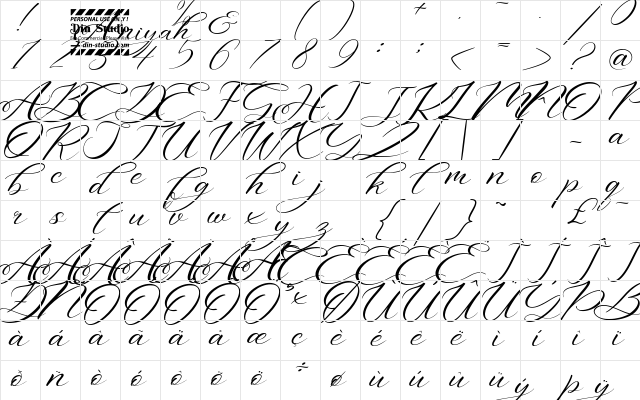 ! & ' ( ) * + , - . / 0
PERSONAL USE ONLY!
Din Studio
din-studio.com
1 2 3 4 5 6 7 8 9 : ; < = > ? @
A B C D E F G H I J K L M N O P
Q R S T U V W X Y Z [ \ ] _ a
b c d e f g h i j k l m n o p q
r s t u v w x y z { | } ~ ¡ £ ¯
À Á Â Ã Ä Å Æ Ç È É Ê Ë Ì Í Î Ï
Ð Ñ Ò Ó Ô Õ Ö × Ø Ù Ú Û Ü Ý Þ ß
à á â ã ä å æ ç è é ê ë ì í î ï
ð ñ ò ó ô õ ö ÷ ø ù ú û ü ý þ ÿ